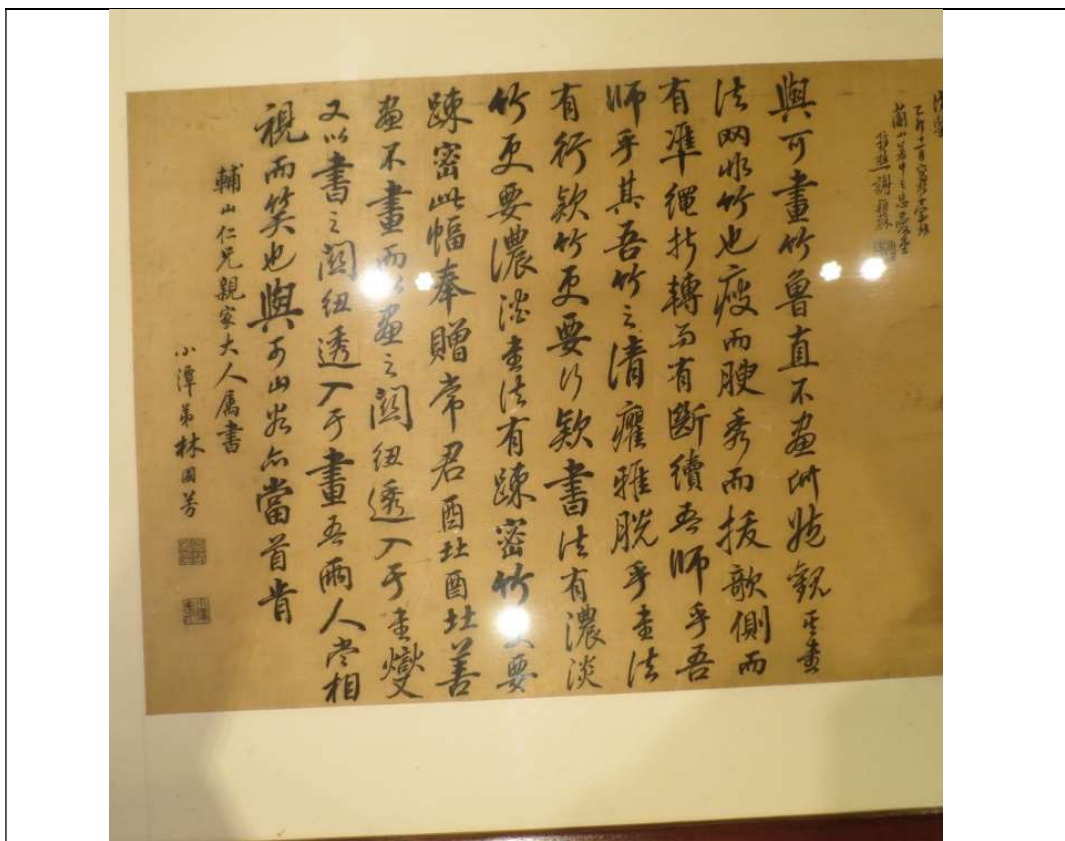 乙卯十一月
謝穎蘇
與可畫竹魯直不畫竹然觀其書
法罔非竹也瘦而腴秀而拔欹側而
有準繩折轉而有斷續吾師乎吾
師乎其吾竹之清癯雅脫乎書法
有行欵竹更要行欵書法有濃淡
竹更要濃淡書法有疎密竹更要
疎密此幅奉贈常君酉北酉北善
畫不畫而以畫之關紐透入于書燮
又以書之關紐透入于畫吾兩人當相
視而笑也與可山谷亦當首肯
輔山仁兄親家大人属書
小潭弟林國芳